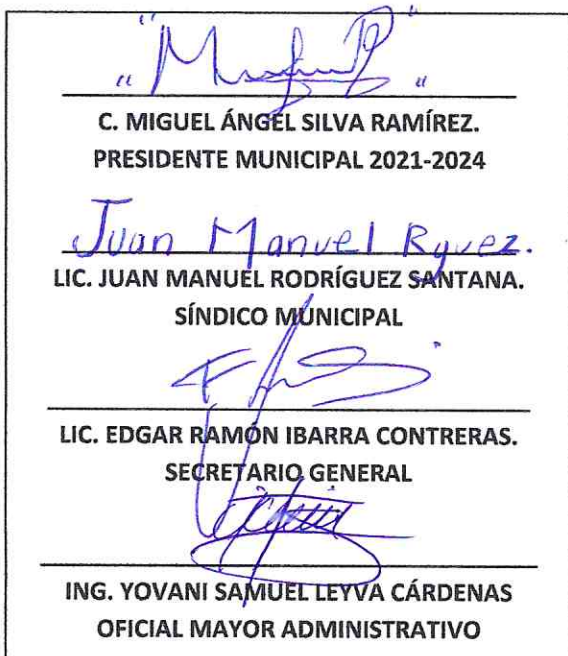 C. MIGUEL ÁNGEL SILVA RAMÍREZ.
PRESIDENTE MUNICIPAL 2021-2024
Juan Manuel Rguez.
LIC. JUAN MANUEL RODRÍGUEZ SANTANA.
SÍNDICO MUNICIPAL
LIC. EDGAR RAMÓN IBARRA CONTRERAS.
SECRETARIO GENERAL
ING. YOVANI SAMUEL LEYVA CÁRDENAS
OFICIAL MAYOR ADMINISTRATIVO